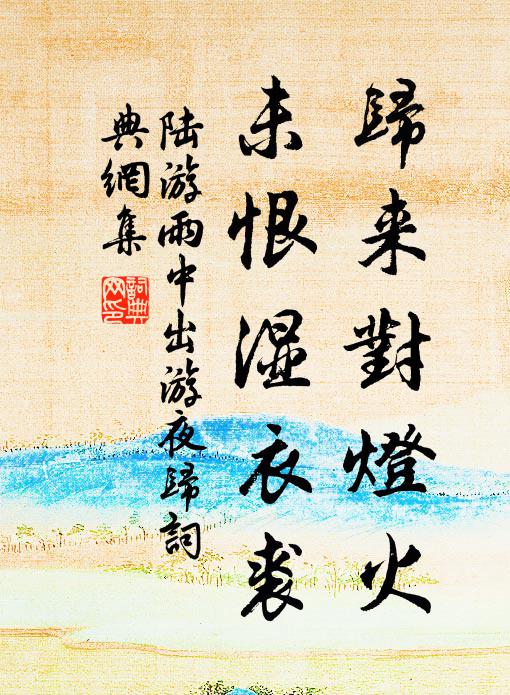 歸来對燈火
未恨濕衣裘
陸游雨中出游夜歸詞
典網集
詞典
网印